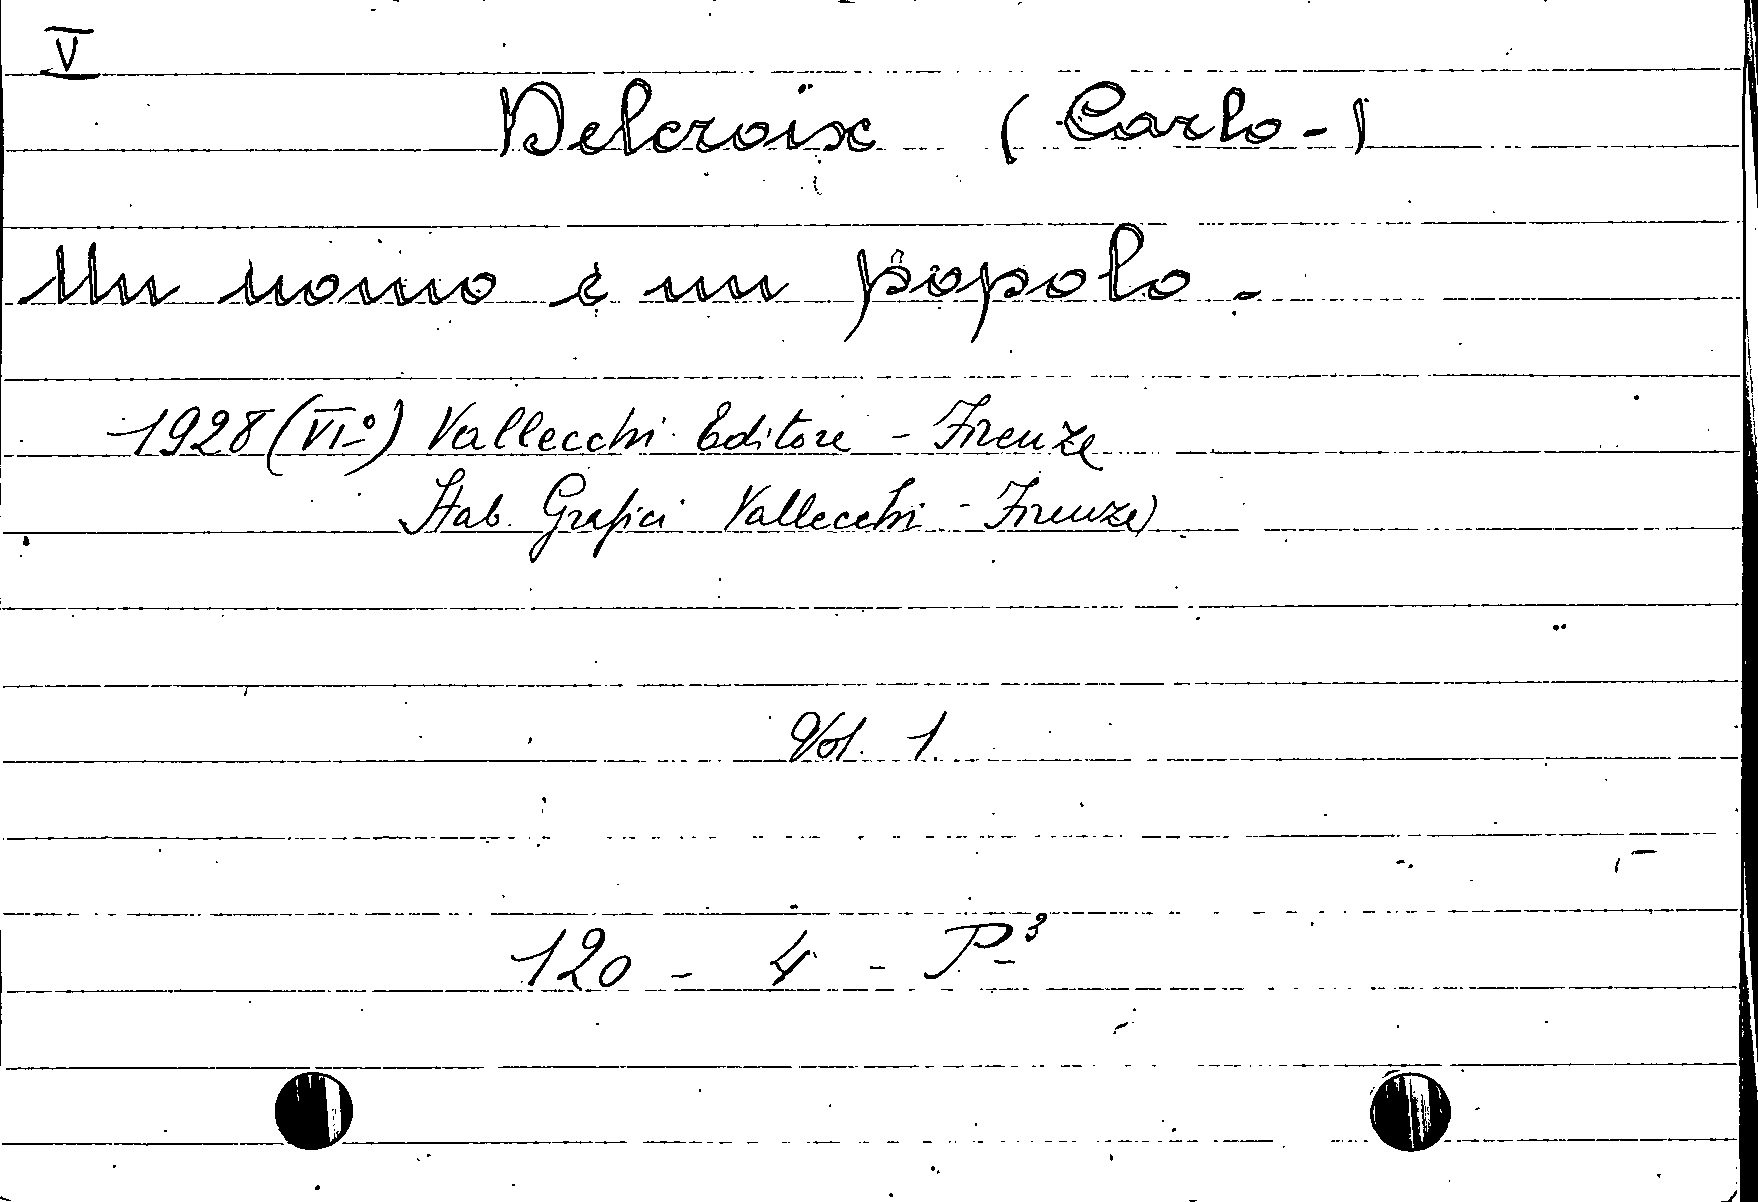 V
Delcroix (Carlo-)
Un uomo e un popolo.
1928 (VIº) Vallecchi Editore - Firenze
Stab. Grafici Vallecchi - Firenze)
Vol. 1.
120 - 4 - P³